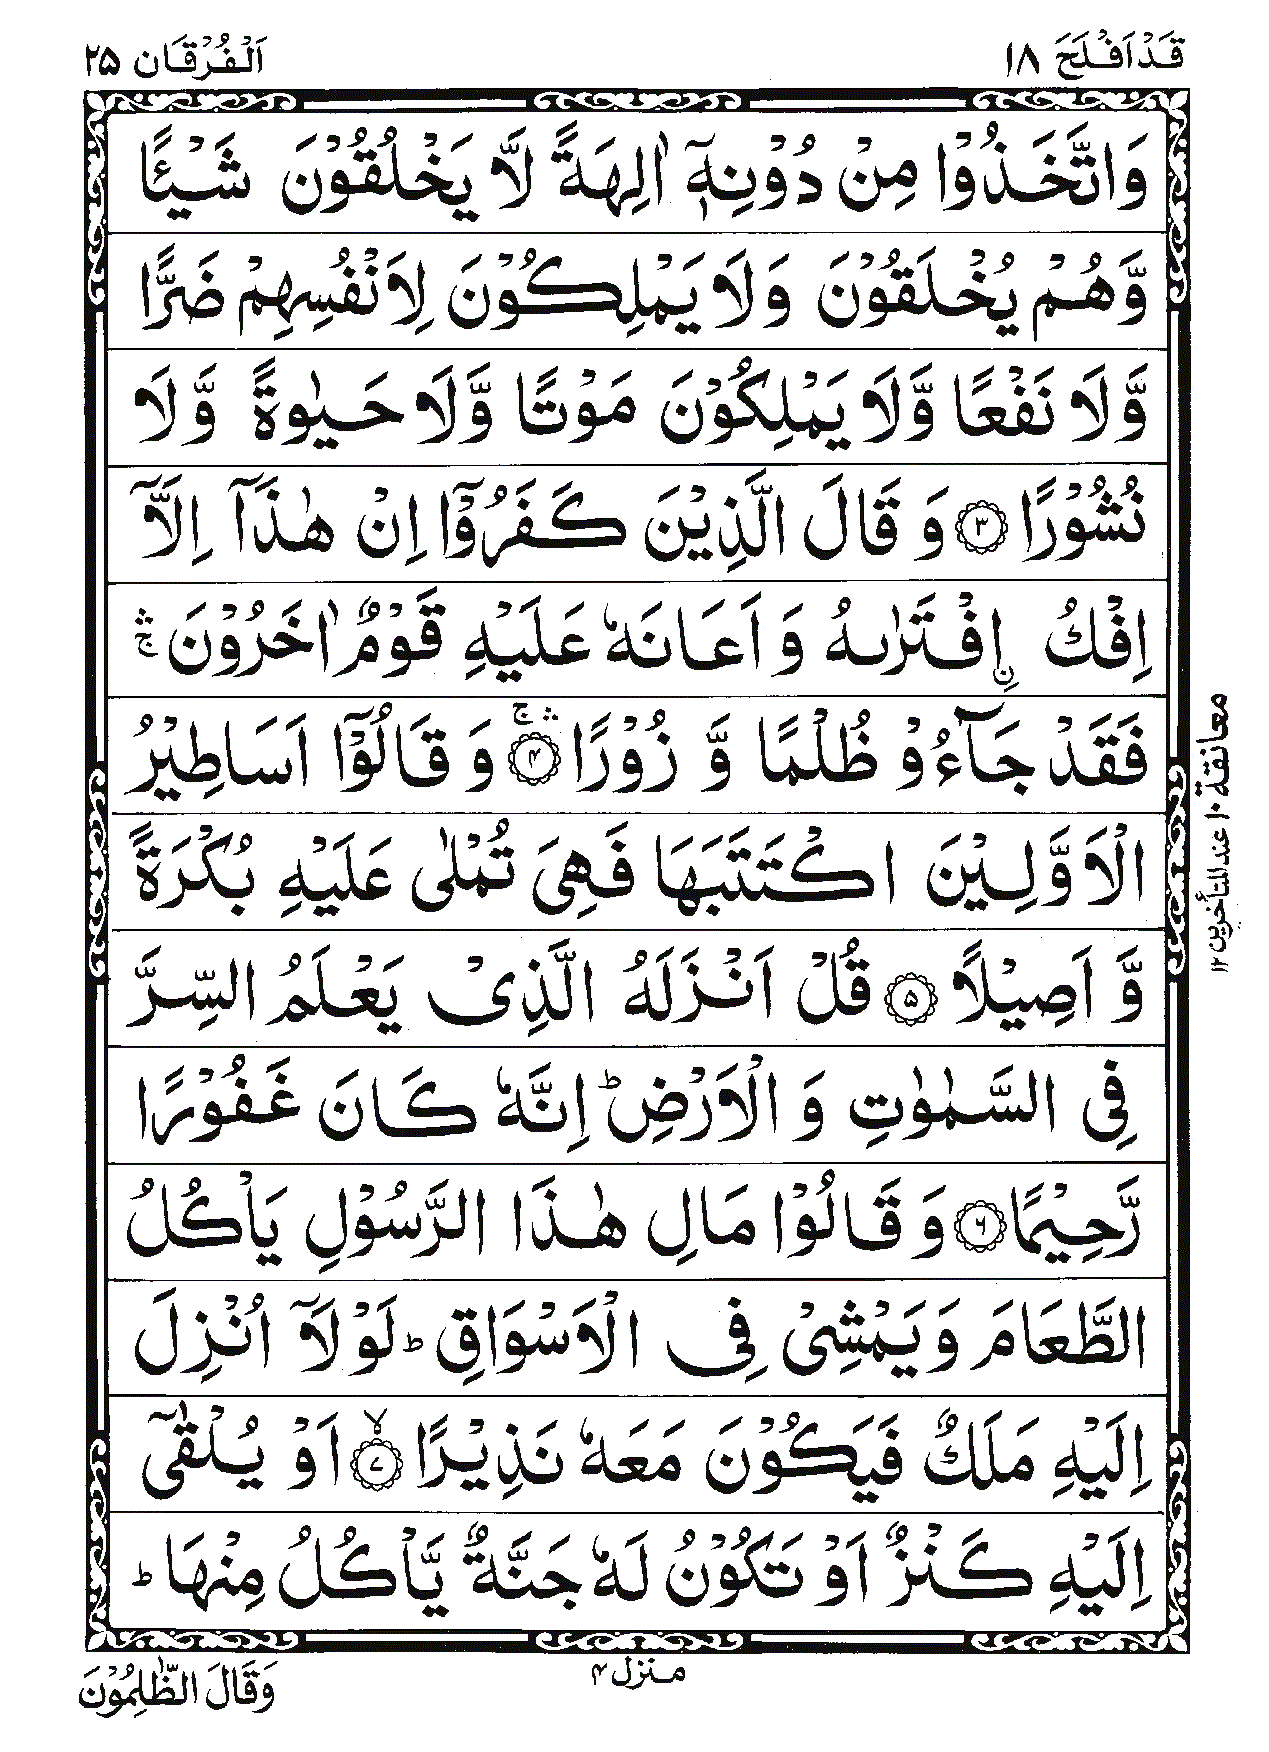 قَدْ اَفْلَحَ ١٨
اَلْفُرْقَان ٢٥
وَاتَّخَذُوْا مِنْ دُوْنِهٖۤ اٰلِهَةً لَّا يَخْلُقُوْنَ شَيْـًٔا
وَّهُمْ يُخْلَقُوْنَ وَلَا يَمْلِكُوْنَ لِاَنْفُسِهِمْ ضَرًّا
وَّلَا نَفْعًا وَّلَا يَمْلِكُوْنَ مَوْتًا وَّلَا حَيٰوةً وَّلَا
نُشُوْرًا ﴿٣﴾ وَ قَالَ الَّذِيْنَ كَفَرُوْۤا اِنْ هٰذَاۤ اِلَّاۤ
اِفْكُ اِ۟فْتَرٰىهُ وَ اَعَانَهٗ عَلَيْهِ قَوْمٌ اٰخَرُوْنَ ۛۚ
فَقَدْ جَآءُوْ ظُلْمًا وَّ زُوْرًا ﴿٤﴾ۛۚ وَ قَالُوْۤا اَسَاطِيْرُ
الْاَوَّلِيْنَ اكْتَتَبَهَا فَهِيَ تُمْلٰى عَلَيْهِ بُكْرَةً
وَّ اَصِيْلًا ﴿٥﴾ قُلْ اَنْزَلَهُ الَّذِيْ يَعْلَمُ السِّرَّ
فِي السَّمٰوٰتِ وَ الْاَرْضِ ؕ اِنَّهٗ كَانَ غَفُوْرًا
رَّحِيْمًا ﴿٦﴾ وَ قَالُوْا مَالِ هٰذَا الرَّسُوْلِ يَاْكُلُ
الطَّعَامَ وَيَمْشِيْ فِي الْاَسْوَاقِ ؕ لَوْلَاۤ اُنْزِلَ
اِلَيْهِ مَلَكٌ فَيَكُوْنَ مَعَهٗ نَذِيْرًا ﴿٧﴾ۙ اَوْ يُلْقٰۤى
اِلَيْهِ كَنْزٌ اَوْ تَكُوْنُ لَهٗ جَنَّةٌ يَّاْكُلُ مِنْهَا ؕ
معانقة ١٠ عند المتأخرين ١٢
منزل ٤
وَقَالَ الظّٰلِمُوْنَ